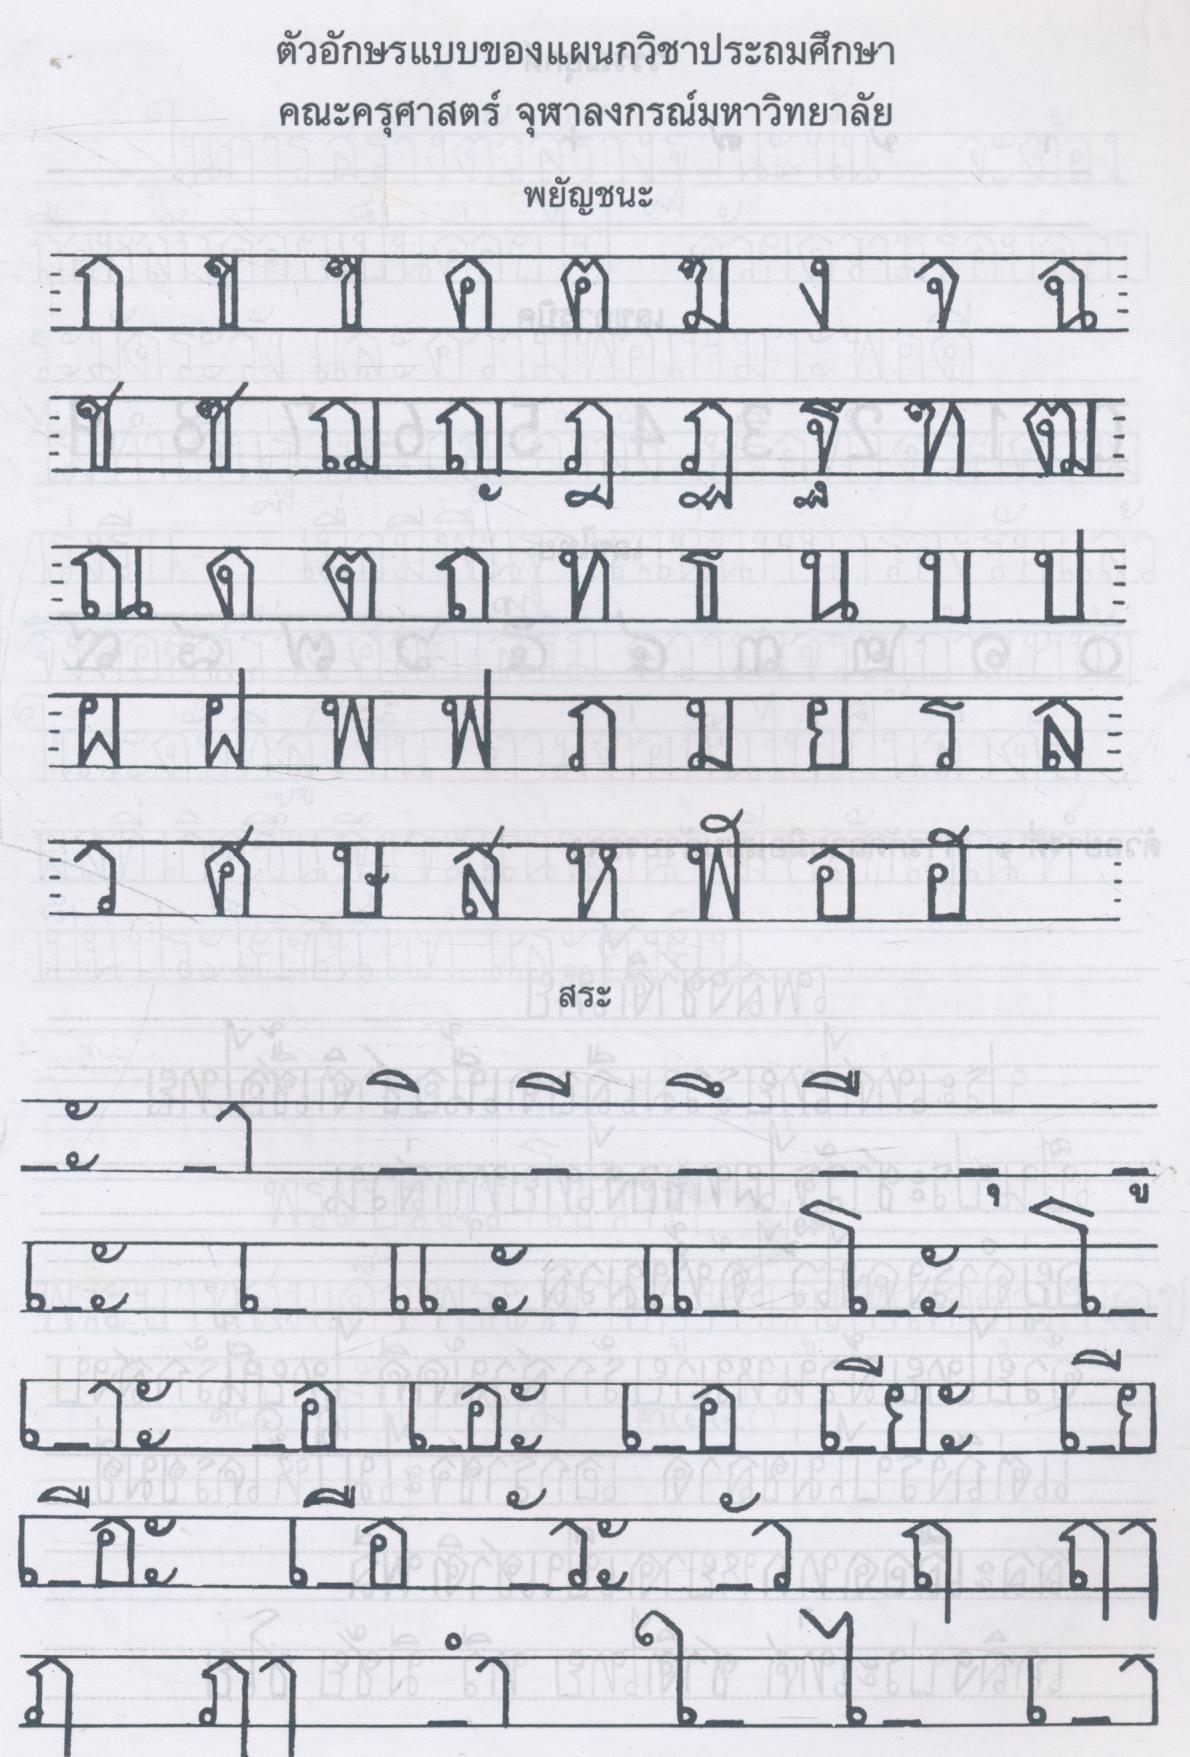 ตัวอักษรแบบของแผนกวิชาประถมศึกษา
คณะครุศาสตร์ จุฬาลงกรณ์มหาวิทยาลัย
พยัญชนะ
ก ข ฃ ค ฅ ฆ ง จ ฉ
ช ซ ฌ ญ ฎ ฏ ฐ ฑ ฒ
ณ ด ต ถ ท ธ น บ ป
ผ ฝ พ ฟ ภ ม ย ร ล
ว ศ ษ ส ห ฬ อ ฮ
สระ
-ะ -า -ิ -ี -ึ -ื -ุ -ู
เ-ะ เ- แ-ะ แ- โ-ะ โ-
เ-าะ -อ เ-อะ เ-อ เ-ียะ เ-ีย
เ-ือะ เ-ือ -ัวะ -ัว ฤ ฤๅ
ฦ ฦๅ -ำ ใ- ไ- เ-า